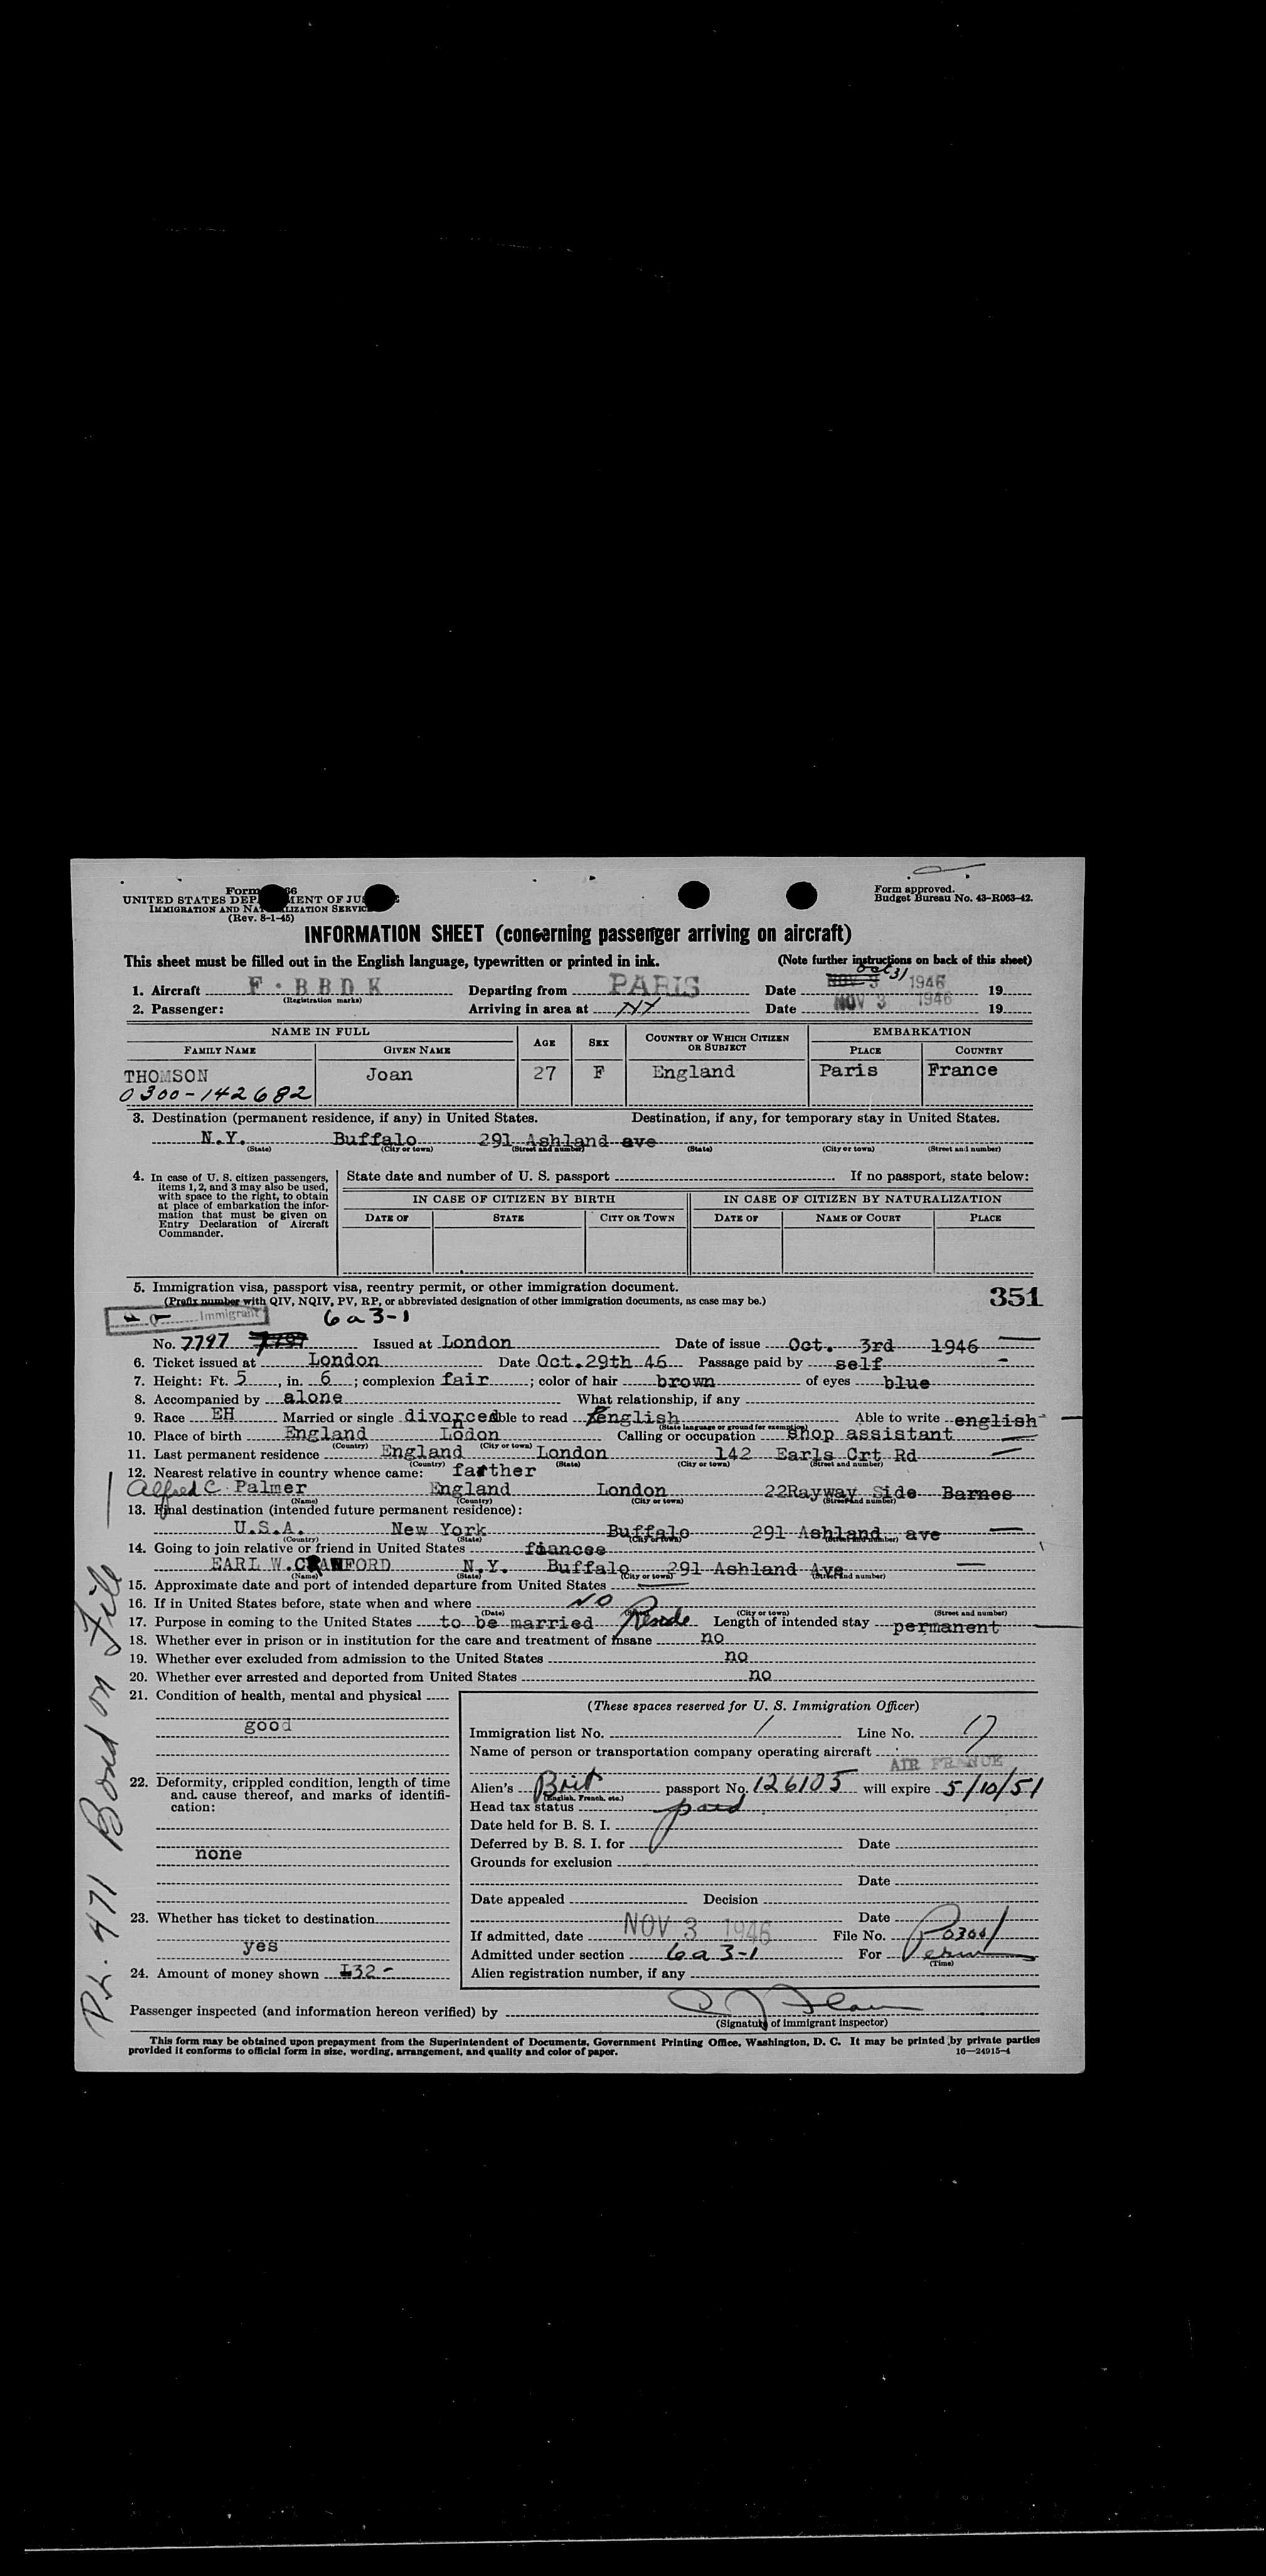 Form 66
UNITED STATES DEP MENT OF JUS
IMMIGRATION AND NA LIZATION SERVIC
(Rev. 8-1-45)
Form approved.
Budget Bureau No. 43-R063-42.
INFORMATION SHEET (concerning passenger arriving on aircraft)
This sheet must be filled out in the English language, typewritten or printed in ink. (Note further instructions on back of this sheet)
Oct 31
1. Aircraft F·BBDK Departing from PARIS Date NOV 3 1946 19
(Registration marks)
2. Passenger: Arriving in area at NY Date NOV 3 1946 19
NAME IN FULL AGE SEX COUNTRY OF WHICH CITIZEN OR SUBJECT EMBARKATION
FAMILY NAME GIVEN NAME PLACE COUNTRY
THOMSON Joan 27 F England Paris France
0300-142682
3. Destination (permanent residence, if any) in United States. Destination, if any, for temporary stay in United States.
N.Y. Buffalo 291 Ashland ave
(State) (City or town) (Street and number) (State) (City or town) (Street and number)
4. In case of U. S. citizen passengers, items 1, 2, and 3 may also be used, with space to the right, to obtain at place of embarkation the information that must be given on Entry Declaration of Aircraft Commander.
State date and number of U. S. passport If no passport, state below:
IN CASE OF CITIZEN BY BIRTH IN CASE OF CITIZEN BY NATURALIZATION
DATE OF STATE CITY OR TOWN DATE OF NAME OF COURT PLACE
5. Immigration visa, passport visa, reentry permit, or other immigration document.
(Prefix number with QIV, NQIV, PV, RP, or abbreviated designation of other immigration documents, as case may be.)
351
Immigrant 6a3-1
No. 7797 7797 Issued at London Date of issue Oct. 3rd 1946
6. Ticket issued at London Date Oct.29th 46 Passage paid by self
7. Height: Ft. 5, in. 6; complexion fair; color of hair brown of eyes blue
8. Accompanied by alone What relationship, if any
9. Race EH Married or single divorced able to read English Able to write english
(State language or ground for exemption)
10. Place of birth England Lodon Calling or occupation shop assistant
(Country) (City or town)
11. Last permanent residence England London 142 Earls Crt Rd
(Country) (State) (City or town) (Street and number)
12. Nearest relative in country whence came: farther
Alfred C. Palmer England London 22Rayway Side Barnes
(Name) (Country) (City or town) (Street and number)
13. Final destination (intended future permanent residence):
U.S.A. New York Buffalo 291 Ashland ave
(Country) (State) (City or town) (Street and number)
14. Going to join relative or friend in United States fiancee
EARL W.CRAWFORD N.Y. Buffalo 291 Ashland Ave
(Name) (State) (City or town) (Street and number)
15. Approximate date and port of intended departure from United States
16. If in United States before, state when and where NO
(Date) (City or town) (Street and number)
17. Purpose in coming to the United States to be married Reside Length of intended stay permanent
18. Whether ever in prison or in institution for the care and treatment of insane no
19. Whether ever excluded from admission to the United States no
20. Whether ever arrested and deported from United States no
21. Condition of health, mental and physical
good
22. Deformity, crippled condition, length of time and cause thereof, and marks of identification:
none
23. Whether has ticket to destination
yes
24. Amount of money shown £32-
(These spaces reserved for U. S. Immigration Officer)
Immigration list No. 1 Line No. 17
Name of person or transportation company operating aircraft
AIR FRANCE
Alien's Brit passport No. 126105 will expire 5/10/51
(English, French, etc.)
Head tax status paid
Date held for B. S. I.
Deferred by B. S. I. for Date
Grounds for exclusion
Date
Date appealed Decision
Date
If admitted, date NOV 3 1946 File No.
Admitted under section 6a3-1 For Perm
(Time)
Alien registration number, if any
Passenger inspected (and information hereon verified) by
(Signature of immigrant inspector)
This form may be obtained upon prepayment from the Superintendent of Documents, Government Printing Office, Washington, D. C. It may be printed by private parties
provided it conforms to official form in size, wording, arrangement, and quality and color of paper.
16—24915-4
471 Bond on File